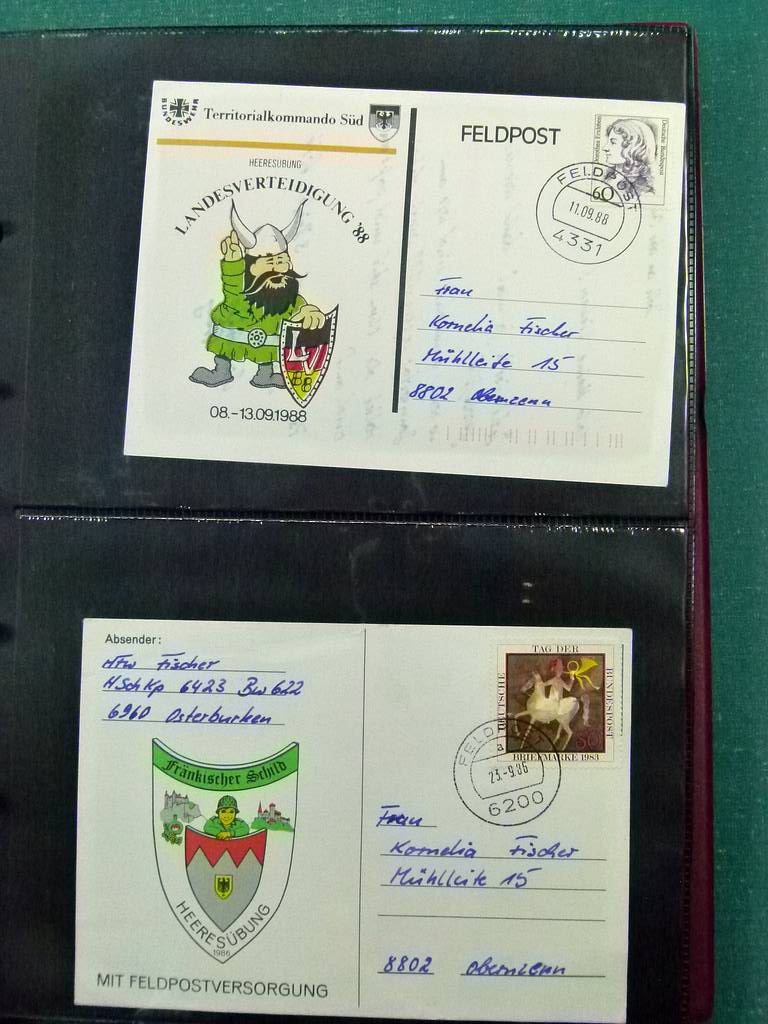 BUNDESWEHR
Territorialkommando Süd
HEERESÜBUNG
LANDESVERTEIDIGUNG '88
LV
88
08.-13.09.1988
FELDPOST
Deutsche Bundespost
60
FELDPOST
11.09.88
4331
Frau
Kornelia Fischer
Mühlleite 15
8802 Obernzenn
Absender:
HFw Fischer
6423 Bw 622
6960 Osterburken
Fränkischer Schild
HEERESÜBUNG
1986
MIT FELDPOSTVERSORGUNG
TAG DER
BRIEFMARKE 1983
DEUTSCHE
BUNDESPOST
80
FELDPOST
a
23.-9.86
6200
Frau
Kornelia Fischer
Mühlleite 15
8802 Obernzenn